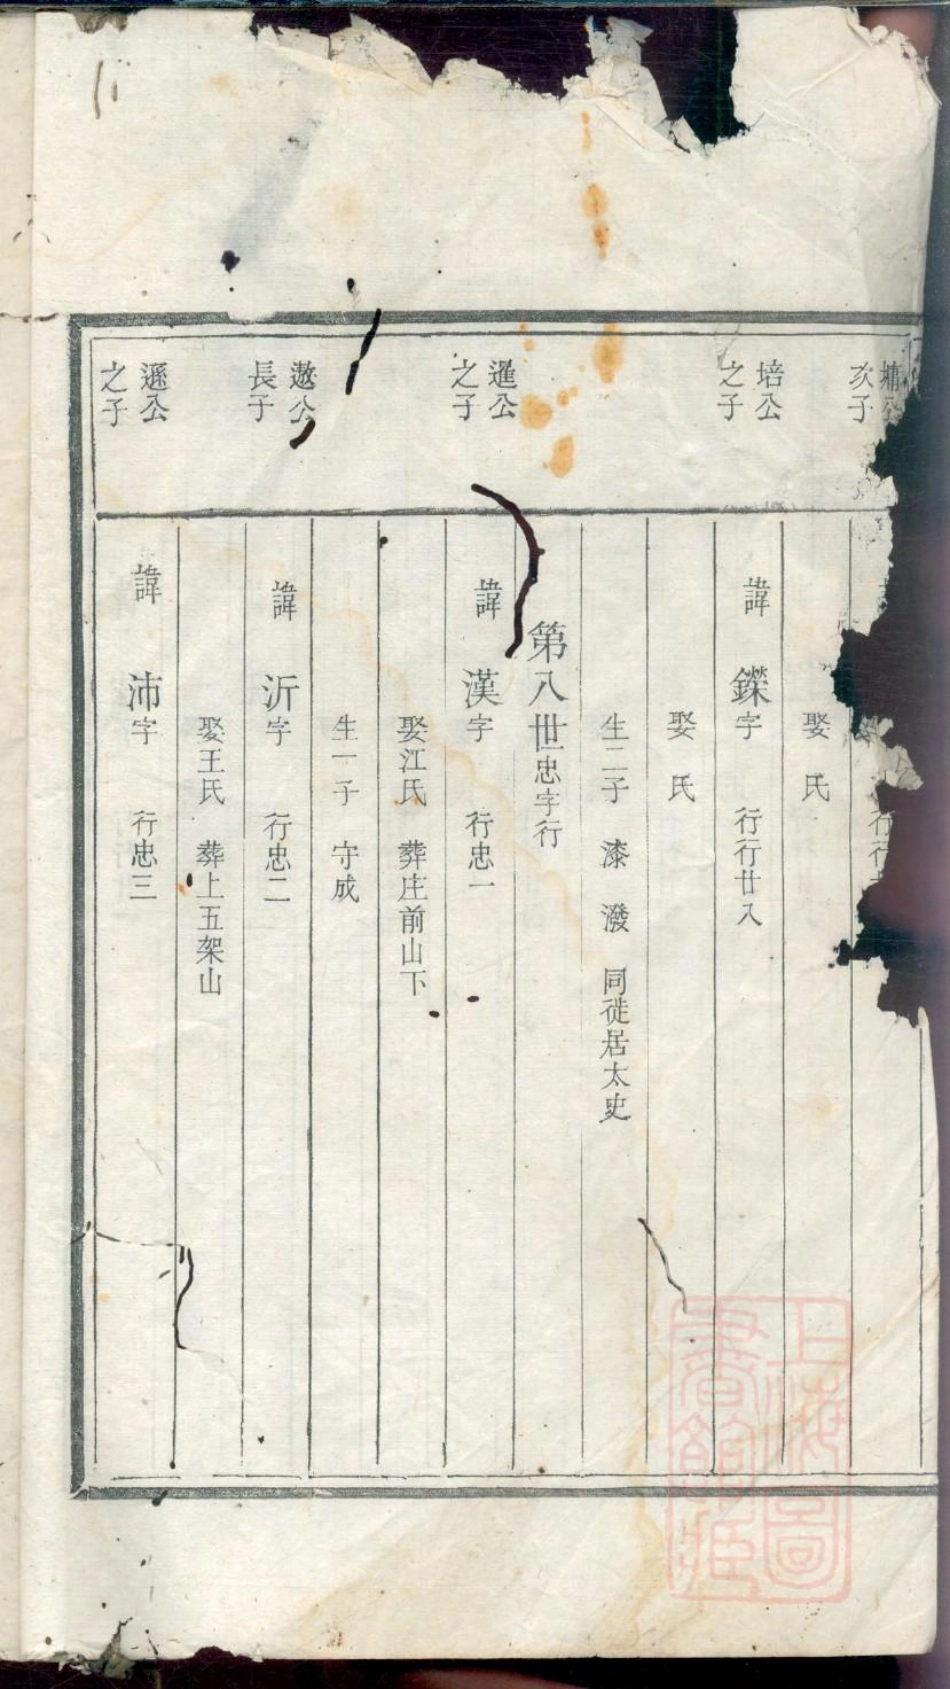 墉公
次子
行行
娶　氏
培公
之子
諱　鑅字　行行廿入
娶　氏
生二子　漆　潑　同徙居太史
第八世忠字行
暹公
之子
諱　漢字　行忠一
娶江氏　葬庄前山下
生一子　守成
遨公
長子
諱　沂字　行忠二
娶王氏　葬上五架山
遜公
之子
諱　沛字　行忠三
上海圖
書館藏